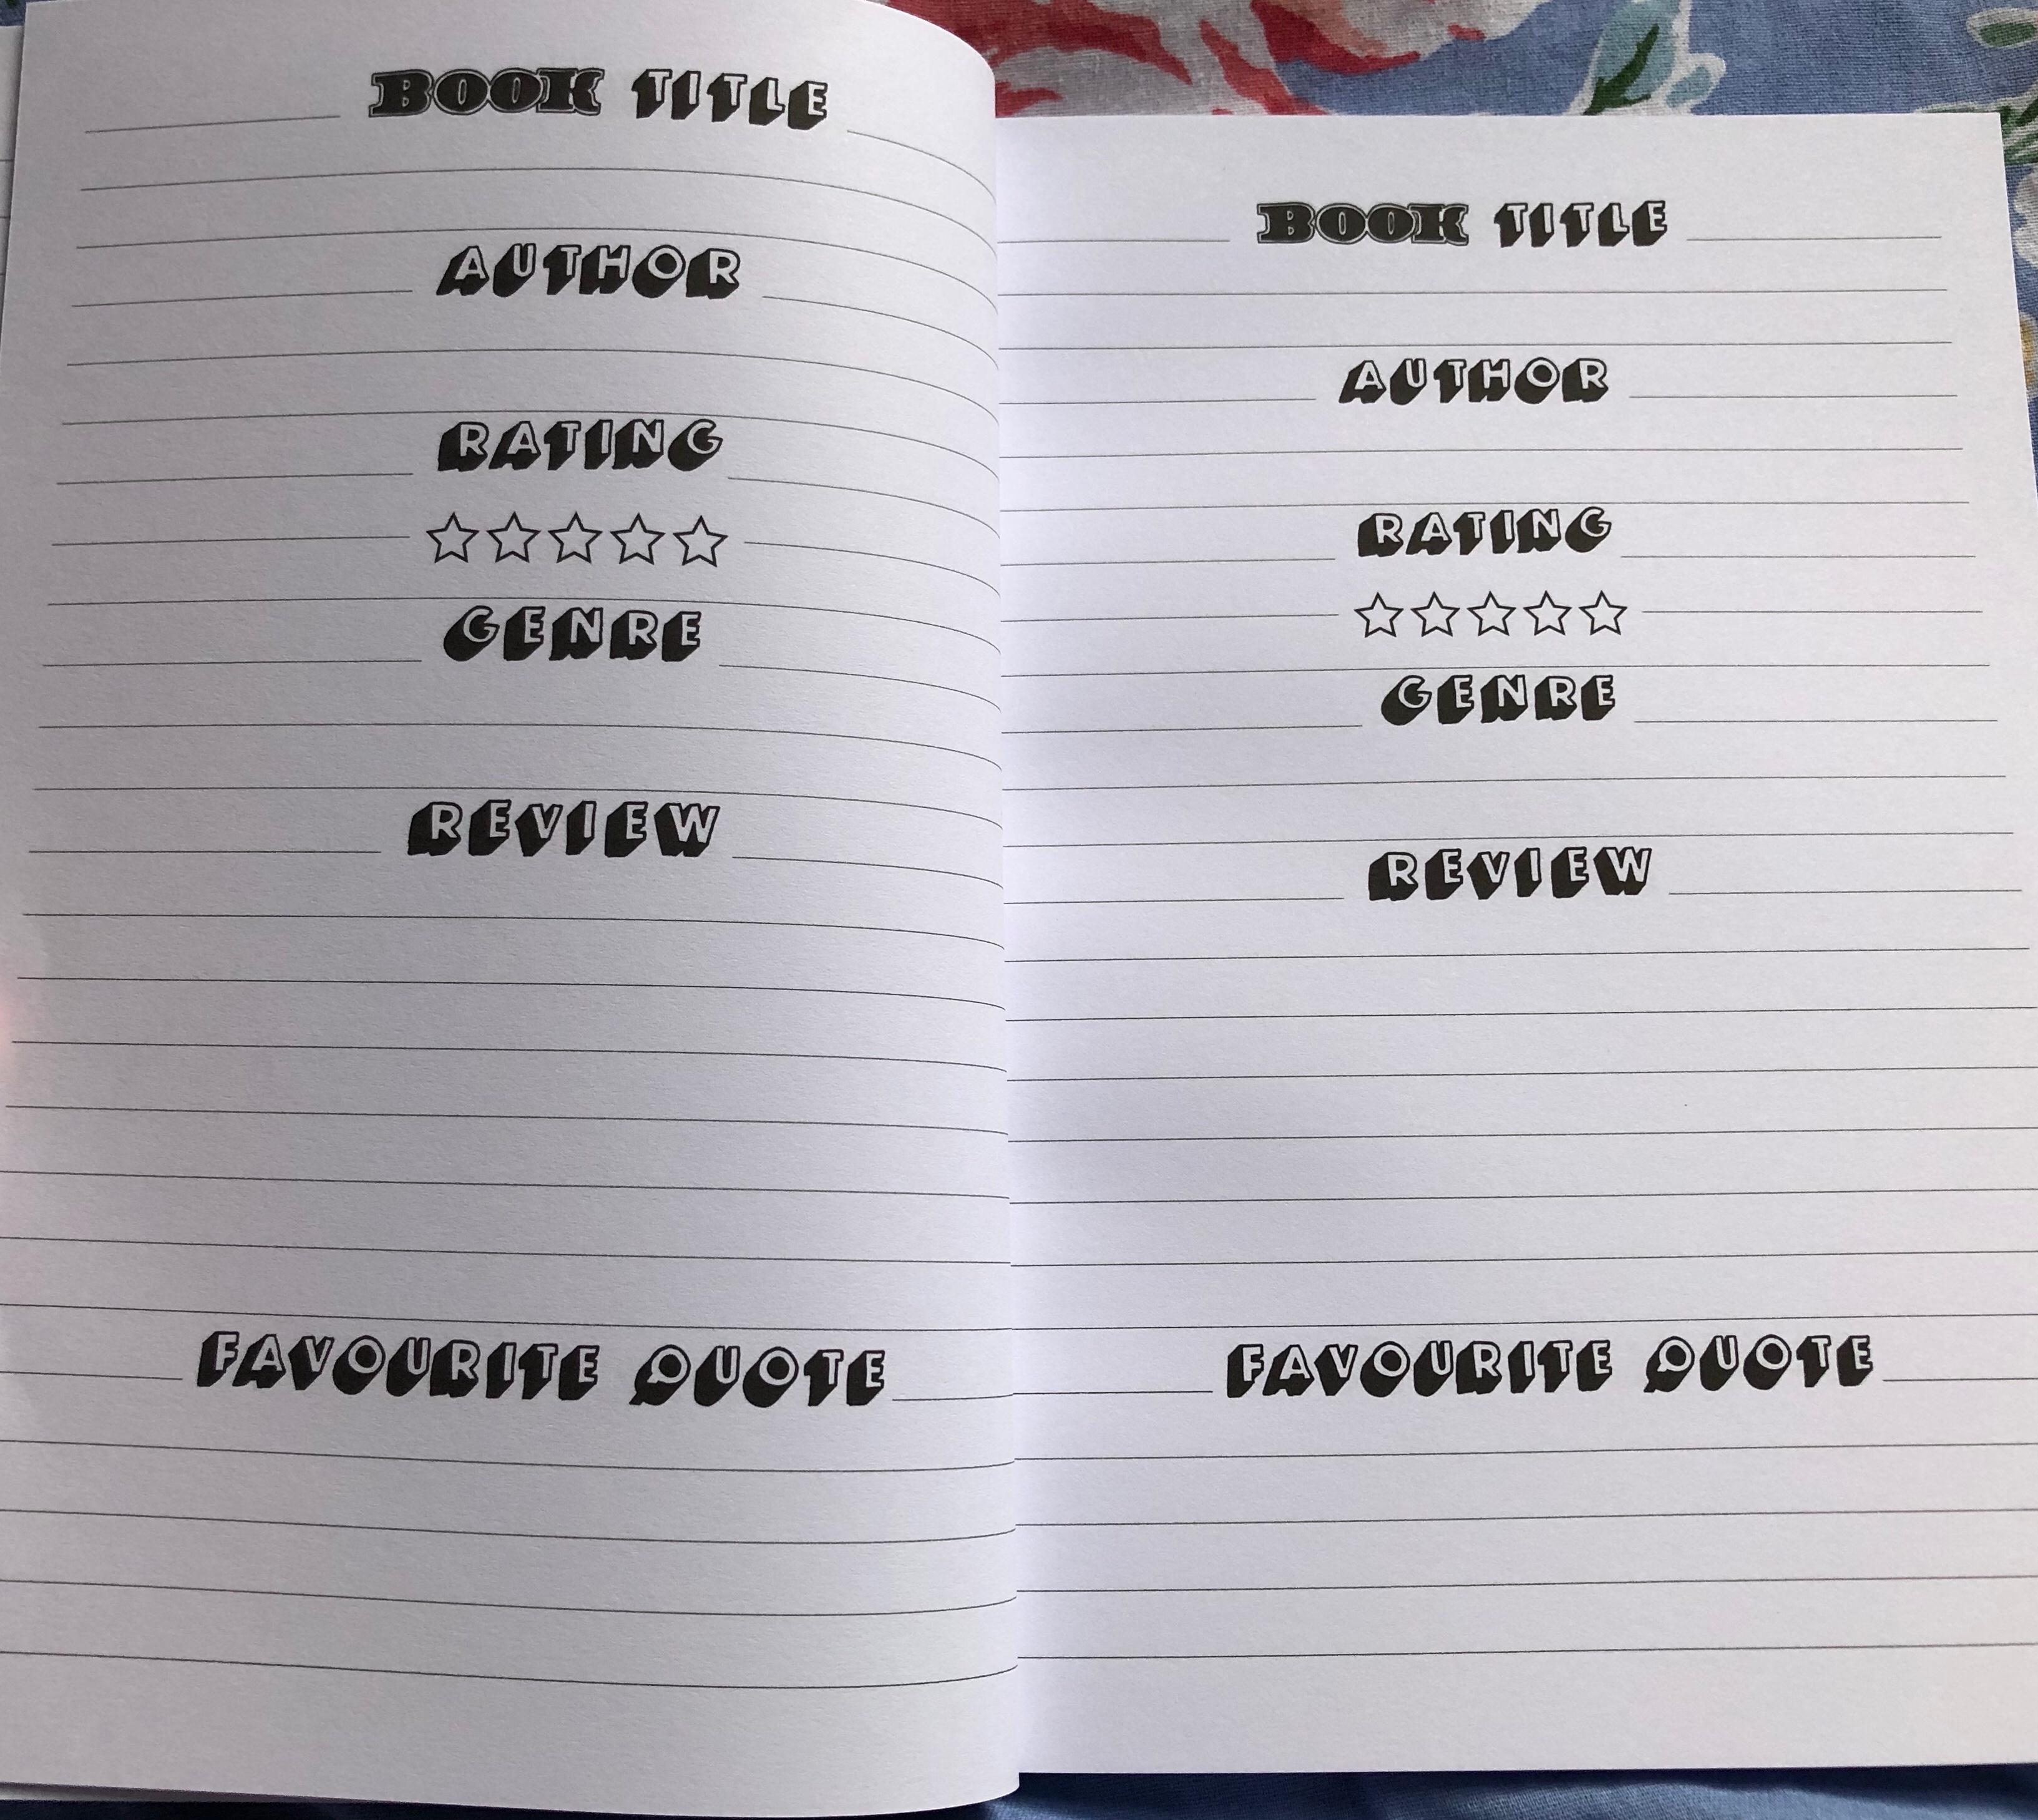 BOOK TITLE
AUTHOR
RATING
GENRE
REVIEW
FAVOURITE QUOTE
BOOK TITLE
AUTHOR
RATING
GENRE
REVIEW
FAVOURITE QUOTE